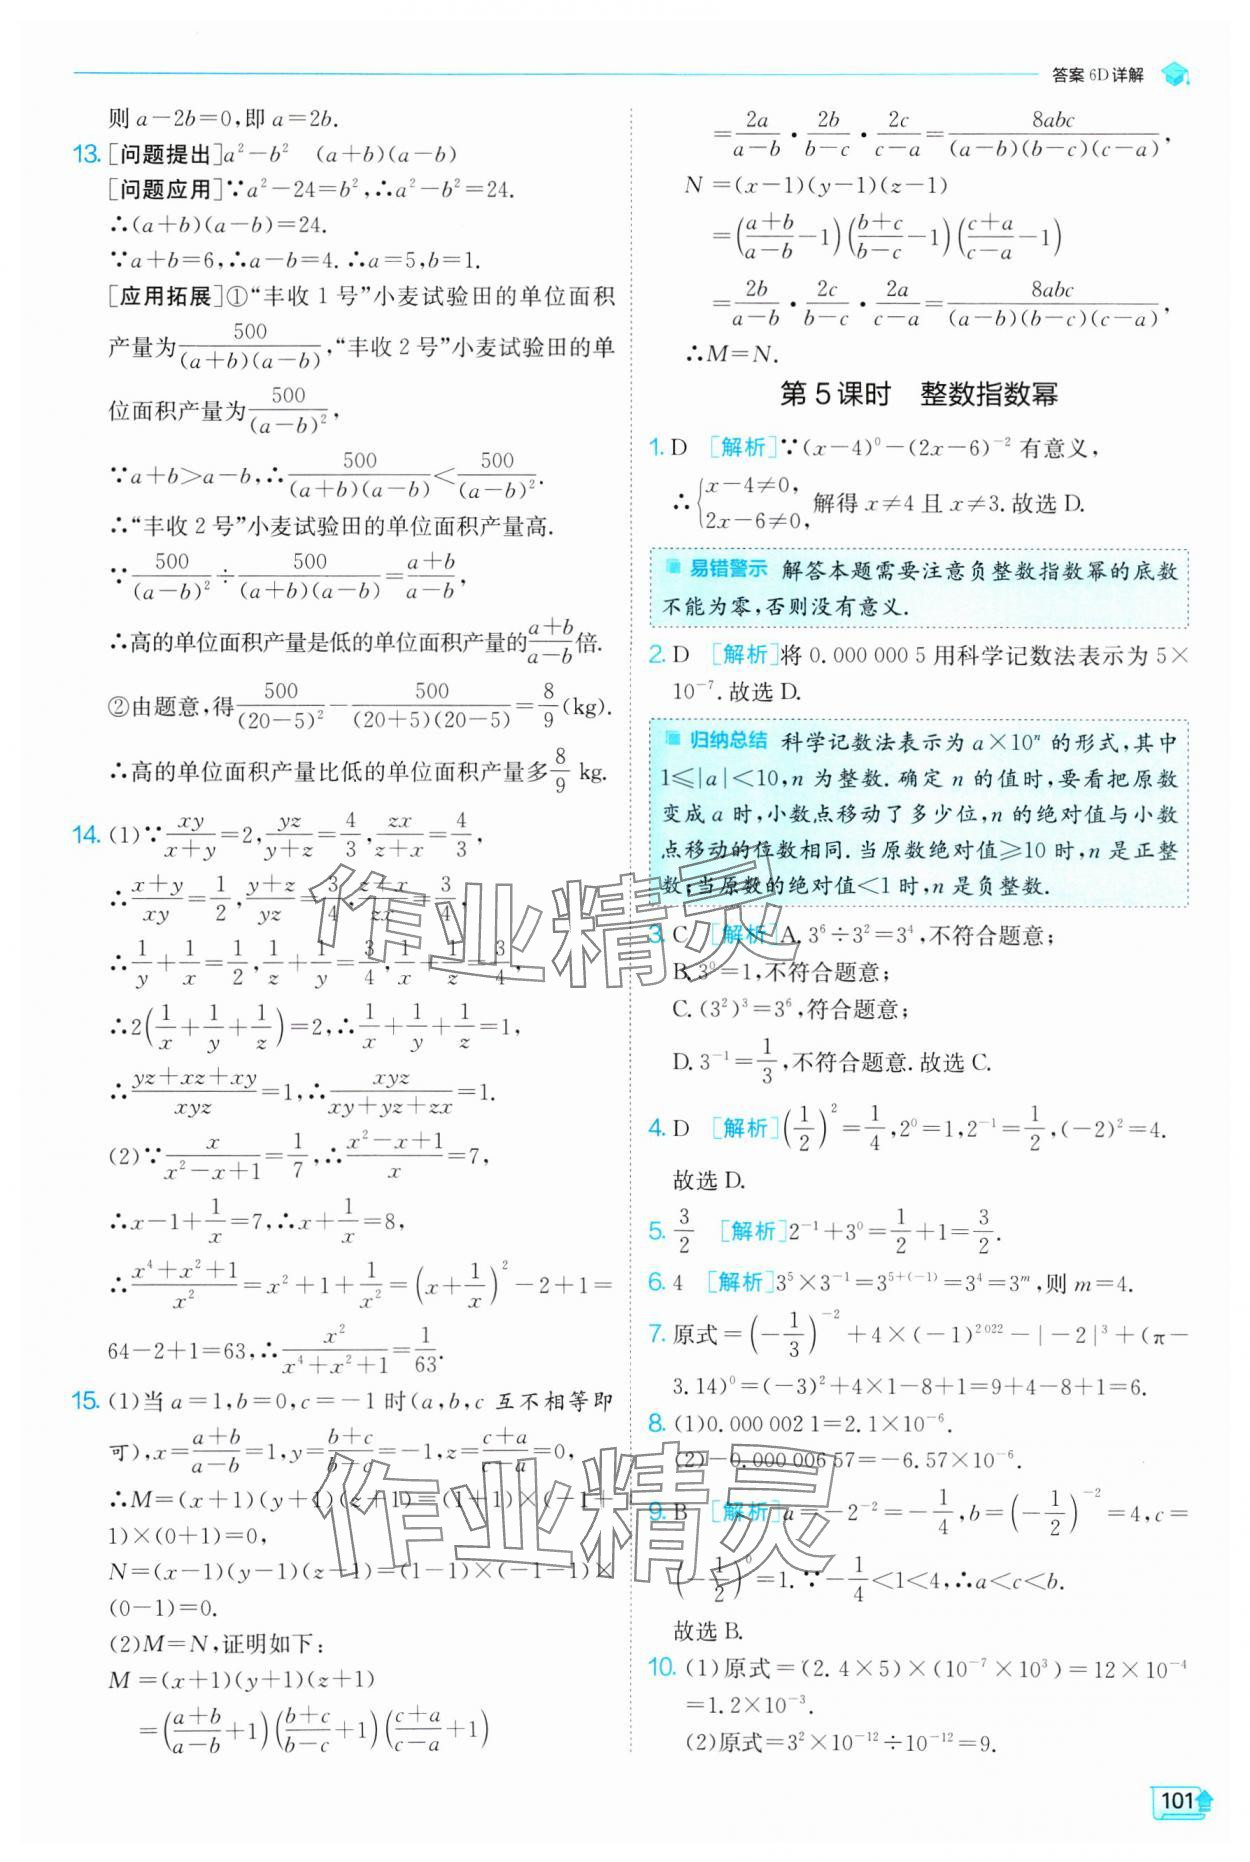 答案 6D 详解
则 a－2b＝0,即 a＝2b.
13. [问题提出]a²－b² (a＋b)(a－b)
[问题应用]∵a²－24＝b²,∴a²－b²＝24.
∴(a＋b)(a－b)＝24.
∵a＋b＝6,∴a－b＝4.∴a＝5,b＝1.
[应用拓展]①“丰收 1 号”小麦试验田的单位面积
产量为500/((a＋b)(a－b)),“丰收 2 号”小麦试验田的单
位面积产量为500/(a－b)²,
∵a＋b＞a－b,∴500/((a＋b)(a－b))＜500/(a－b)².
∴“丰收 2 号”小麦试验田的单位面积产量高.
∵500/(a－b)²÷500/((a＋b)(a－b))＝(a＋b)/(a－b),
∴高的单位面积产量是低的单位面积产量的(a＋b)/(a－b)倍.
②由题意,得500/(20－5)²－500/((20＋5)(20－5))＝8/9(kg).
∴高的单位面积产量比低的单位面积产量多8/9 kg.
14. (1)∵xy/(x＋y)＝2,yz/(y＋z)＝4/3,zx/(z＋x)＝4/3,
∴(x＋y)/xy＝1/2,(y＋z)/yz＝3/4,(z＋x)/zx＝3/4,
∴1/y＋1/x＝1/2,1/z＋1/y＝3/4,1/x＋1/z＝3/4,
∴2(1/x＋1/y＋1/z)＝2,∴1/x＋1/y＋1/z＝1,
∴(yz＋xz＋xy)/xyz＝1,∴xyz/(xy＋yz＋zx)＝1.
(2)∵x/(x²－x＋1)＝1/7,∴(x²－x＋1)/x＝7,
∴x－1＋1/x＝7,∴x＋1/x＝8,
∴(x⁴＋x²＋1)/x²＝x²＋1＋1/x²＝(x＋1/x)²－2＋1＝
64－2＋1＝63,∴x²/(x⁴＋x²＋1)＝1/63.
15. (1)当 a＝1,b＝0,c＝－1 时(a,b,c 互不相等即
可),x＝(a＋b)/(a－b)＝1,y＝(b＋c)/(b－c)＝－1,z＝(c＋a)/(c－a)＝0,
∴M＝(x＋1)(y＋1)(z＋1)＝(1＋1)×(－1＋
1)×(0＋1)＝0,
N＝(x－1)(y－1)(z－1)＝(1－1)×(－1－1)×
(0－1)＝0.
(2)M＝N,证明如下:
M＝(x＋1)(y＋1)(z＋1)
＝((a＋b)/(a－b)＋1)((b＋c)/(b－c)＋1)((c＋a)/(c－a)＋1)
＝2a/(a－b)·2b/(b－c)·2c/(c－a)＝8abc/((a－b)(b－c)(c－a)),
N＝(x－1)(y－1)(z－1)
＝((a＋b)/(a－b)－1)((b＋c)/(b－c)－1)((c＋a)/(c－a)－1)
＝2b/(a－b)·2c/(b－c)·2a/(c－a)＝8abc/((a－b)(b－c)(c－a)),
∴M＝N.
第 5 课时 整数指数幂
1. D [解析]∵(x－4)⁰－(2x－6)⁻² 有意义,
∴{x－4≠0,
2x－6≠0, 解得 x≠4 且 x≠3.故选 D.
易错警示 解答本题需要注意负整数指数幂的底数
不能为零,否则没有意义.
2. D [解析]将 0.000 000 5 用科学记数法表示为 5×
10⁻⁷.故选 D.
归纳总结 科学记数法表示为 a×10ⁿ 的形式,其中
1≤|a|＜10,n 为整数.确定 n 的值时,要看把原数
变成 a 时,小数点移动了多少位,n 的绝对值与小数
点移动的位数相同.当原数绝对值≥10 时,n 是正整
数;当原数的绝对值＜1 时,n 是负整数.
3. C [解析]A.3⁶÷3²＝3⁴,不符合题意;
B.3⁰＝1,不符合题意;
C.(3²)³＝3⁶,符合题意;
D.3⁻¹＝1/3,不符合题意.故选 C.
4. D [解析](1/2)²＝1/4,2⁰＝1,2⁻¹＝1/2,(－2)²＝4.
故选 D.
5. 3/2 [解析]2⁻¹＋3⁰＝1/2＋1＝3/2.
6. 4 [解析]3⁵×3⁻¹＝3⁵⁺⁽⁻¹⁾＝3⁴＝3ᵐ,则 m＝4.
7. 原式＝(－1/3)⁻²＋4×(－1)²⁰²²－|－2|³＋(π－
3.14)⁰＝(－3)²＋4×1－8＋1＝9＋4－8＋1＝6.
8. (1)0.000 002 1＝2.1×10⁻⁶.
(2)－0.000 006 57＝－6.57×10⁻⁶.
9. B [解析]a＝－2⁻²＝－1/4,b＝(－1/2)⁻²＝4,c＝
(－1/2)⁰＝1.∵－1/4＜1＜4,∴a＜c＜b.
故选 B.
10. (1)原式＝(2.4×5)×(10⁻⁷×10³)＝12×10⁻⁴
＝1.2×10⁻³.
(2)原式＝3²×10⁻¹²÷10⁻¹²＝9.
作业精灵
作业精灵
101